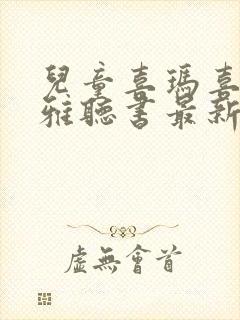 兒童喜瑪喜
雅聽書最新
虛無會首